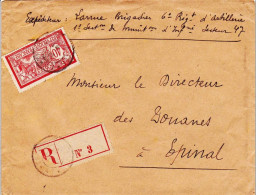 Expéditeur : Larme Brigadier 6e Régt d'Artillerie
1e Secton de Munitns d'Infie Secteur 47
Monsieur le Directeur
des Douanes
à Epinal
R N° 3